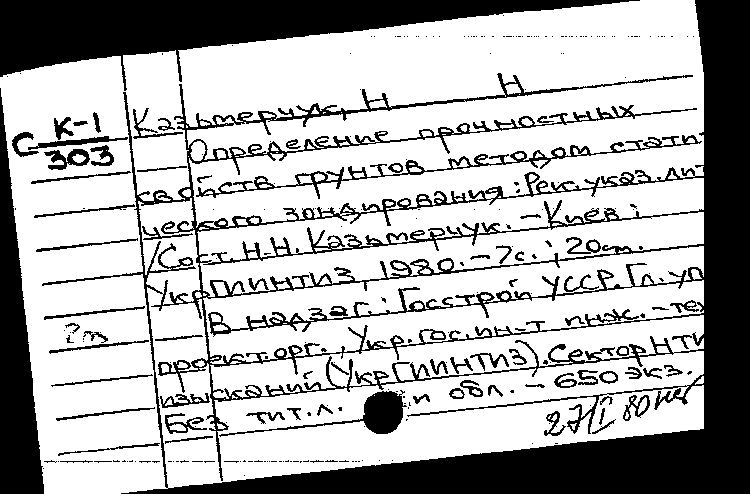 С К-1/303
Казьмерчук, Н Н
Определение прочностных
свойств грунтов методом стати-
ческого зондирования: Рек. указ. лит
/Сост. Н.Н. Казьмерчук. – Киев:
УкрГИИНТИЗ, 1980. – 7с.; 20см.
В надзаг.: Госстрой УССР. Гл. уп
проект. орг., Укр. гос. ин-т инж.-тех
изысканий (УкрГИИНТИЗ). Сектор НТИ
Без тит. л. и обл. – 650 экз.